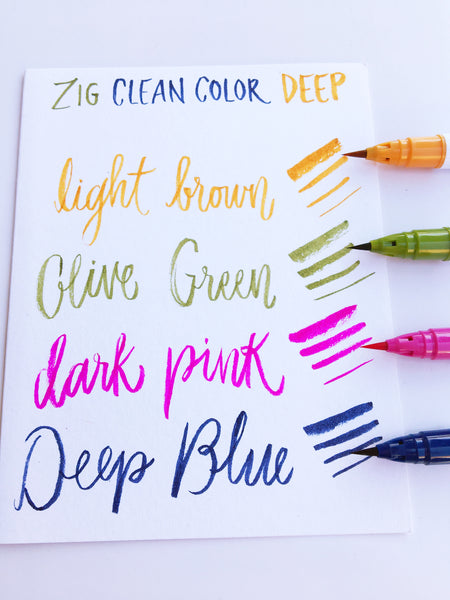 ZIG CLEAN COLOR DEEP
light brown
Olive Green
dark pink
Deep Blue